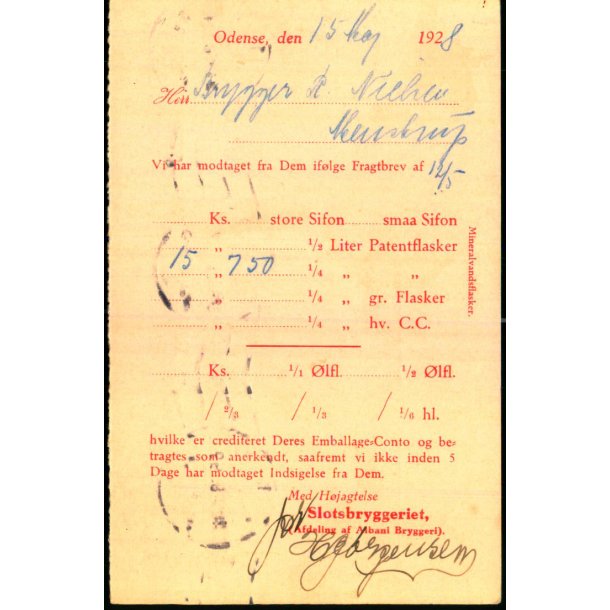 Odense, den 15 Maj 1928
Herr Brygger R. Nielsen
Vi har modtaget fra Dem ifølge Fragtbrev af 12/5
Ks. store Sifon smaa Sifon
„ ½ Liter Patentflasker
15 „ 750 ¼ „ „
„ ¼ „ gr. Flasker
„ ¼ „ hv. C.C.
Mineralvandsflasker.
Ks. 1/1 Ølfl. ½ Ølfl.
/ 2/3 / 1/3 / 1/6 hl.
hvilke er crediteret Deres Emballage-Conto og be-
tragtes som anerkendt, saafremt vi ikke inden 5
Dage har modtaget Indsigelse fra Dem.
Med Højagtelse
Slotsbryggeriet,
(Afdeling af Albani Bryggeri).
H Jørgensen